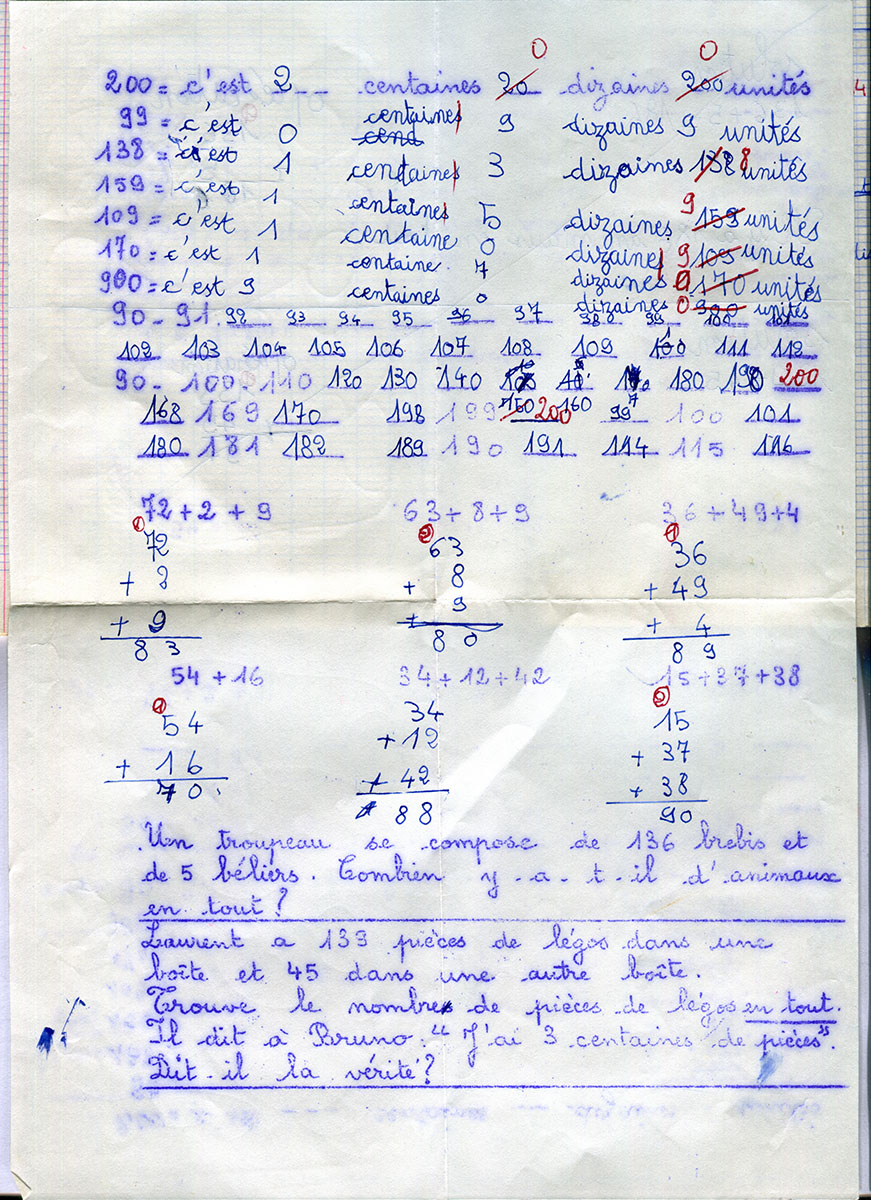 0 0
200 = c'est 2 centaines 20 dizaines 200 unités
99 = c'est 0 centaines 9 dizaines 9 unités
138 = c'est 1 centaines 3 dizaines 138 8 unités
159 = c'est 1 centaines 5 dizaines 9 159 unités
109 = c'est 1 centaine 0 dizaines 9 109 unités
170 = c'est 1 centaine 7 dizaines 0 170 unités
900 = c'est 9 centaines 0 dizaines 0 900 unités
90 - 91 92 93 94 95 96 97 98 99 100 101
102 103 104 105 106 107 108 109 110 111 112
90 - 100 110 120 130 140 180 190 200
150 160
168 169 170 198 199 200 99 100 101
180 181 182 189 190 191 114 115 116
72 + 2 + 9 63 + 8 + 9 36 + 49 + 4
1 2 1
72 63 36
+ 2 + 8 + 49
+ 9 + 9 + 4
83 80 89
54 + 16 34 + 12 + 42 15 + 37 + 38
1 2
54 34 15
+ 16 + 12 + 37
+ 42 + 38
70 88 90
Un troupeau se compose de 136 brebis et
de 5 béliers. Combien y - a - t - il d'animaux
en tout ?
Laurent a 139 pièces de légos dans une
boîte et 45 dans une autre boîte.
Trouve le nombre de pièces de légos en tout.
Il dit à Bruno. "J'ai 3 centaines de pièces".
Dit-il la vérité ?